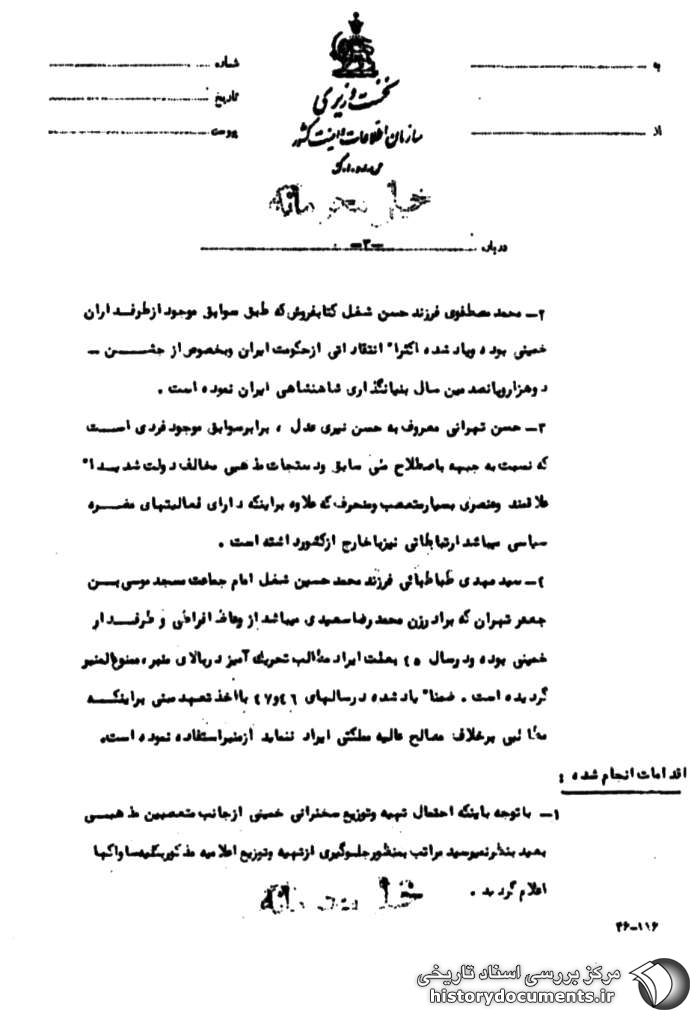 به
شماره
نخست وزیری
تاریخ
سازمان اطلاعات و امنیت کشور
از
پیوست
خیلی محرمانه
درباره -۳-
۲- محمد مصطفوی فرزند حسن شغل کتابفروش که طبق سوابق موجود از طرفداران
خمینی بوده ویاد شده اکثرا" انتقاداتی ازحکومت ایران وبخصوص از جشن -
دوهزاروپانصدمین سال بنیانگذاری شاهنشاهی ایران نموده است .
۳- حسن تهرانی معروف به حسن نیری عدل ، برابرسوابق موجود فردی است
که نسبت به جبهه باصطلاح ملی سابق ودستجات مذهبی مخالف دولت شدیدا"
علاقمند وعنصری بسیارمتعصب ومنحرف که علاوه براینکه دارای فعالیتهای مضره
سیاسی میباشد ارتباطاتی نیزباخارج ازکشورداشته است .
۴- سید مهدی طباطبائی فرزند محمد حسین شغل امام جماعت مسجد موسی بن
جعفر تهران که برادرزن محمد رضا سعیدی میباشد از وعاظ افراطی و طرفدار
خمینی بوده ودرسال ۴۵ بعلت ایراد مطالب تحریک آمیز دربالای منبر ، ممنوع المنبر
گردیده است . ضمنا" یاد شده درسالهای ۴۶ و ۴۷ بااخذ تعهد مبنی براینکه
مطالبی برخلاف مصالح عالیه مملکتی ایراد ننماید ازمنبراستفاده نموده است.
اقدامات انجام شده :
۱- باتوجه باینکه احتمال تهیه وتوزیع سخنرانی خمینی ازجانب متعصبین مذهبی
بعید بنظرنمیرسید مراتب بمنظورجلوگیری ازتهیه وتوزیع اعلامیه مذکوربکلیه ساواکها
اعلام گردید .
خیلی محرمانه
۴۶-۱۱۶
مرکز بررسی اسناد تاریخی
historydocuments.ir